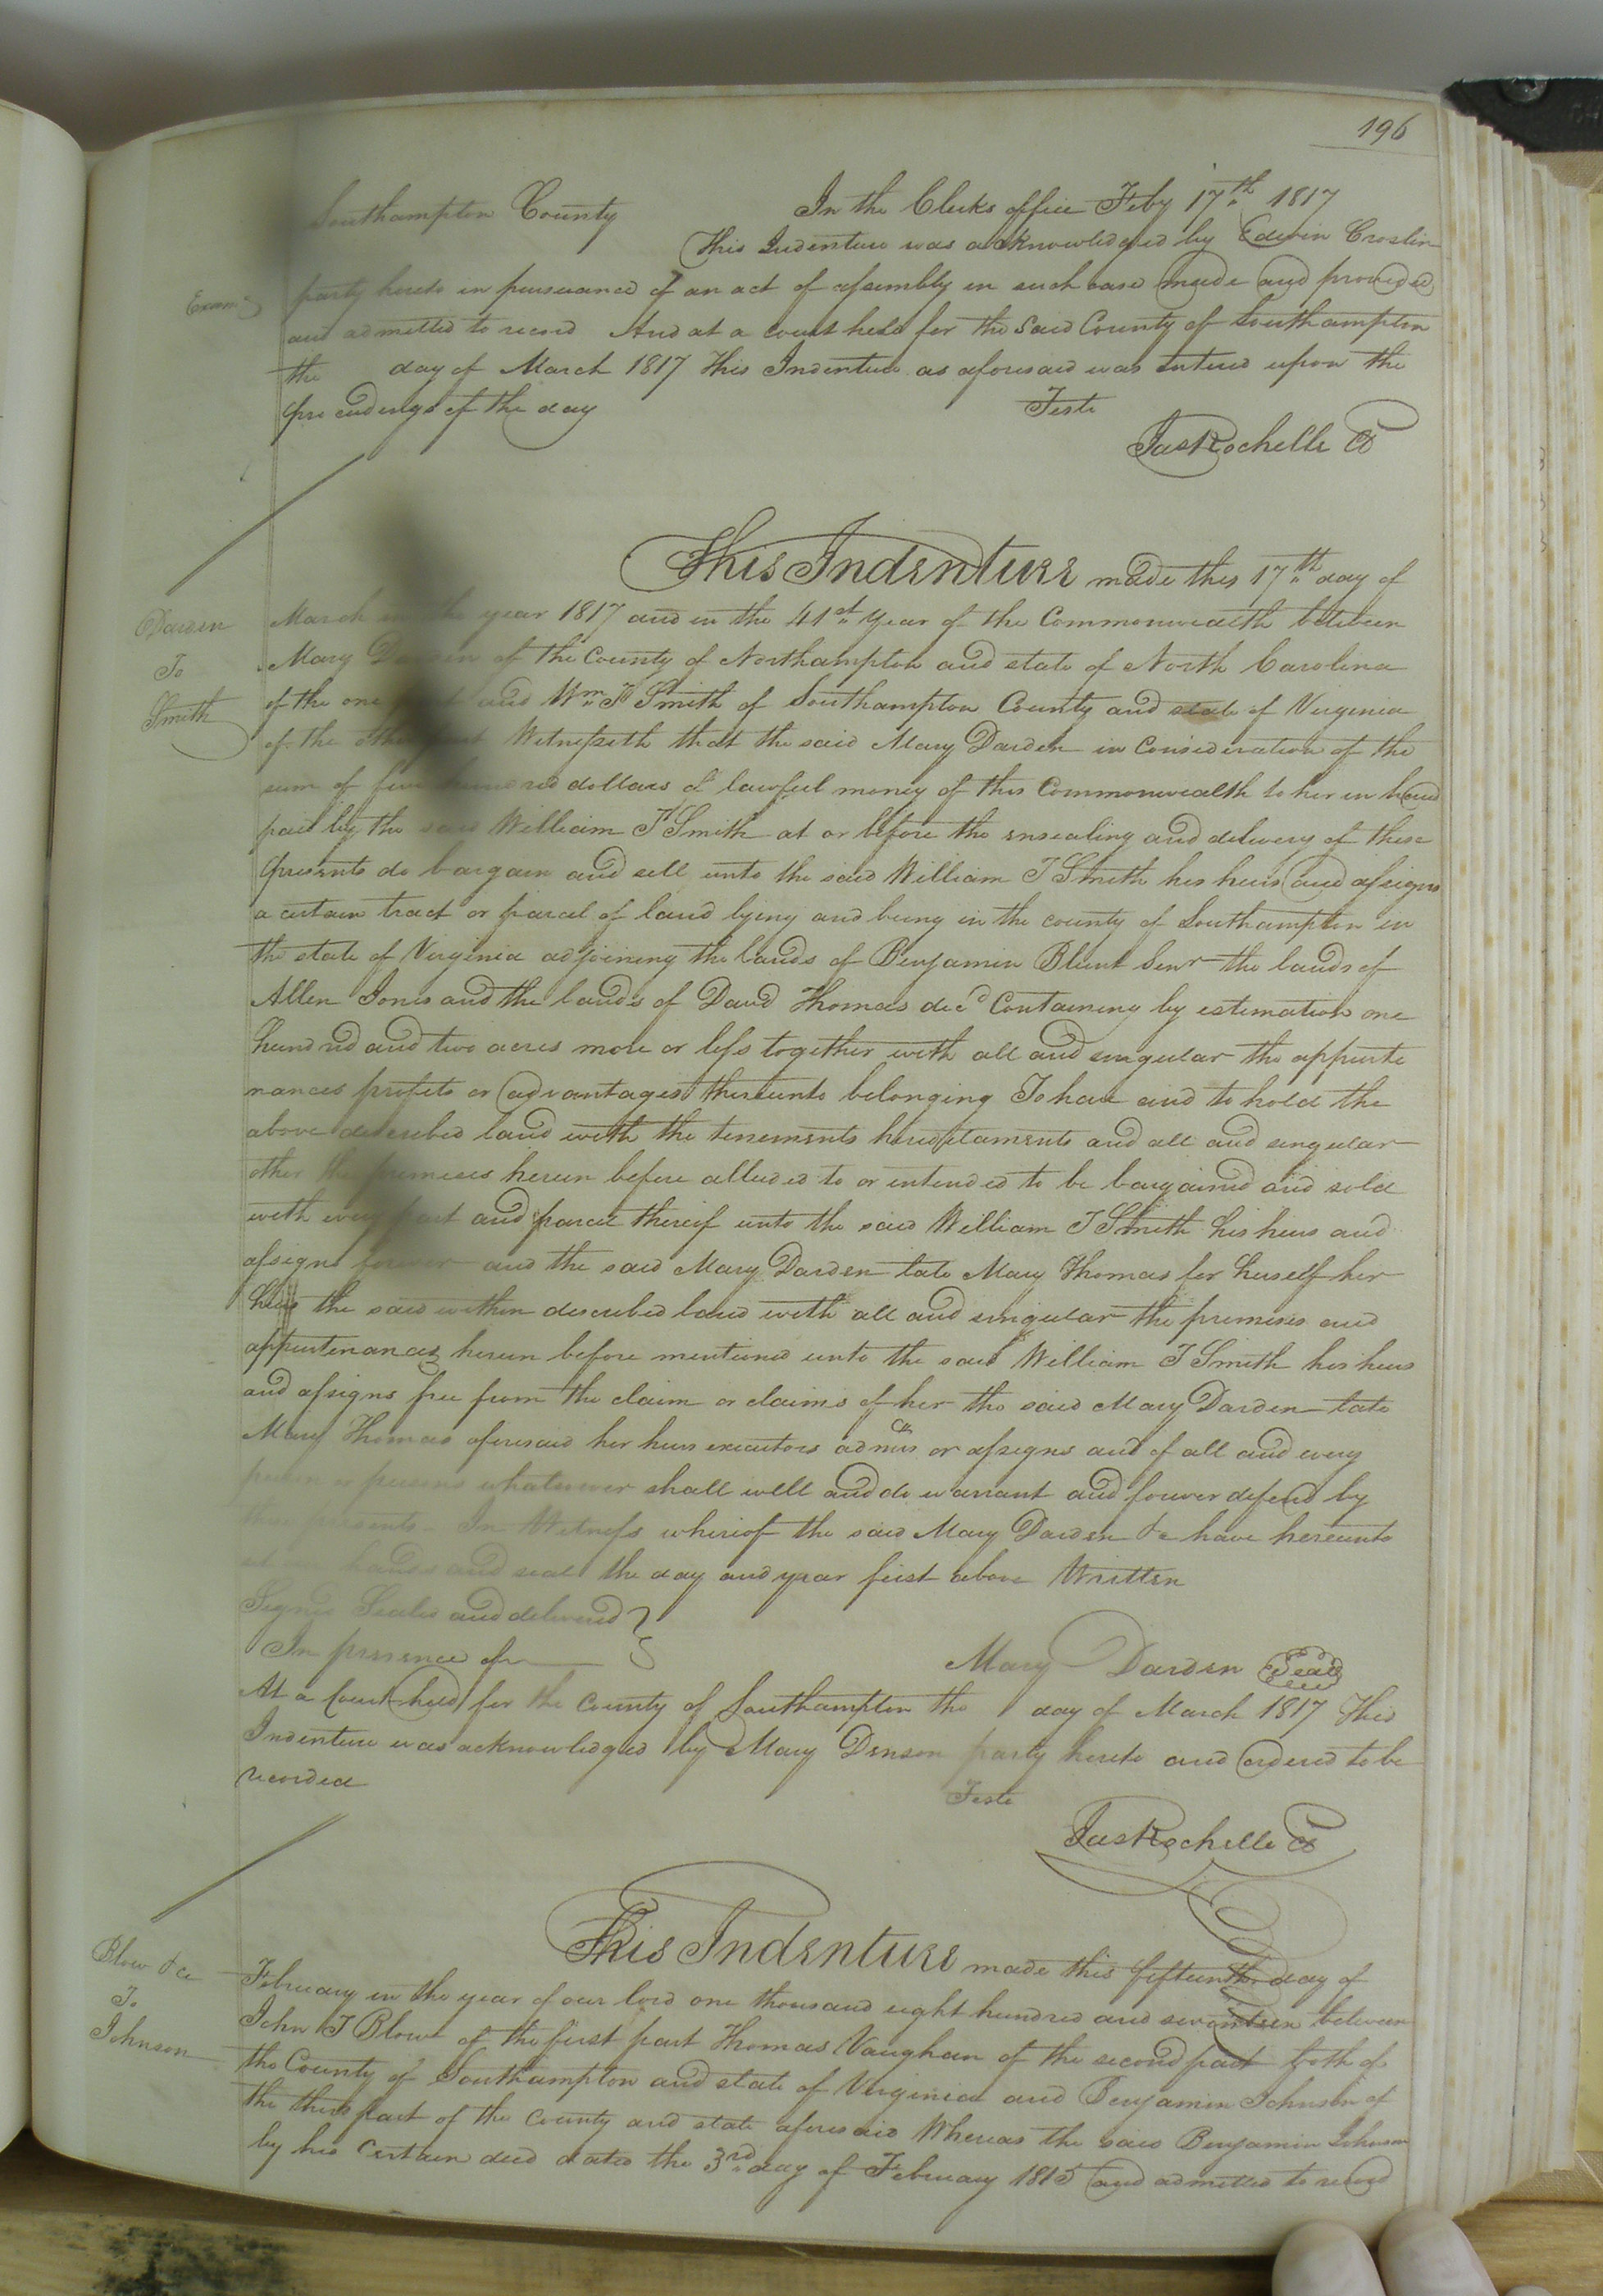 196
Southampton County In the Clerks office Feby 17th 1817
This Indenture was acknowledged by Edwin Croslin
Exam.d party hereto in persuance of an act of assembly in such case made and provided
and admitted to record And at a court held for the said County of Southampton
the day of March 1817 This Indenture as aforesaid was entered upon the
proceedings of the day Teste
Jas Rochelle Cl
This Indenture made this 17th day of
March in the year 1817 and in the 41st year of the Commonwealth between
Darden
To
Smith
Mary Darden of the County of Northampton and state of North Carolina
of the one part and Wm T Smith of Southampton County and state of Virginia
of the other part Witnesseth that the said Mary Darden in Consideration of the
sum of five hundred dollars of lawful money of this Commonwealth to her in hand
paid by the said William T Smith at or before the ensealing and delivery of these
presents do bargain and sell unto the said William T Smith his heirs and assigns
a certain tract or parcel of land lying and being in the county of Southampton in
the state of Virginia adjoining the lands of Benjamin Blunt Senr the lands of
Allen Jones and the lands of David Thomas decd Containing by estimation one
hundred and two acres more or less together with all and singular the appurte
nances profits or advantages thereunto belonging To have and to hold the
above described land with the tenements hereditaments and all and singular
other the premises herein before alluded to or intended to be bargained and sold
with every part and parcel thereof unto the said William T Smith his heirs and
assigns forever and the said Mary Darden late Mary Thomas for herself her
heirs the said within described land with all and singular the premises and
appurtenances herein before mentioned unto the said William T Smith his heirs
and assigns free from the claim or claims of her the said Mary Darden late
Mary Thomas aforesaid her heirs executors admrs or assigns and of all and every
person or persons whatsoever shall well and do warrant and forever defend by
these presents In Witness whereof the said Mary Darden &c have hereunto
set hands and seals the day and year first above Written
Signed Sealed and delivered
In presence of Mary Darden Seal
At a Court held for the County of Southampton the day of March 1817 This
Indenture was acknowledged by Mary Denson party hereto and ordered to be
recorded Teste
Jas Rochelle Cl
This Indenture made this fifteenth day of
Blow &c
To
Johnson
February in the year of our lord one thousand eight hundred and seventeen between
John T Blow of the first part Thomas Vaughan of the second part both of
the County of Southampton and state of Virginia and Benjamin Johnson of
the third part of the County and state aforesaid Whereas the said Benjamin Johnson
by his certain deed dated the 3rd day of February 1815 and admitted to record